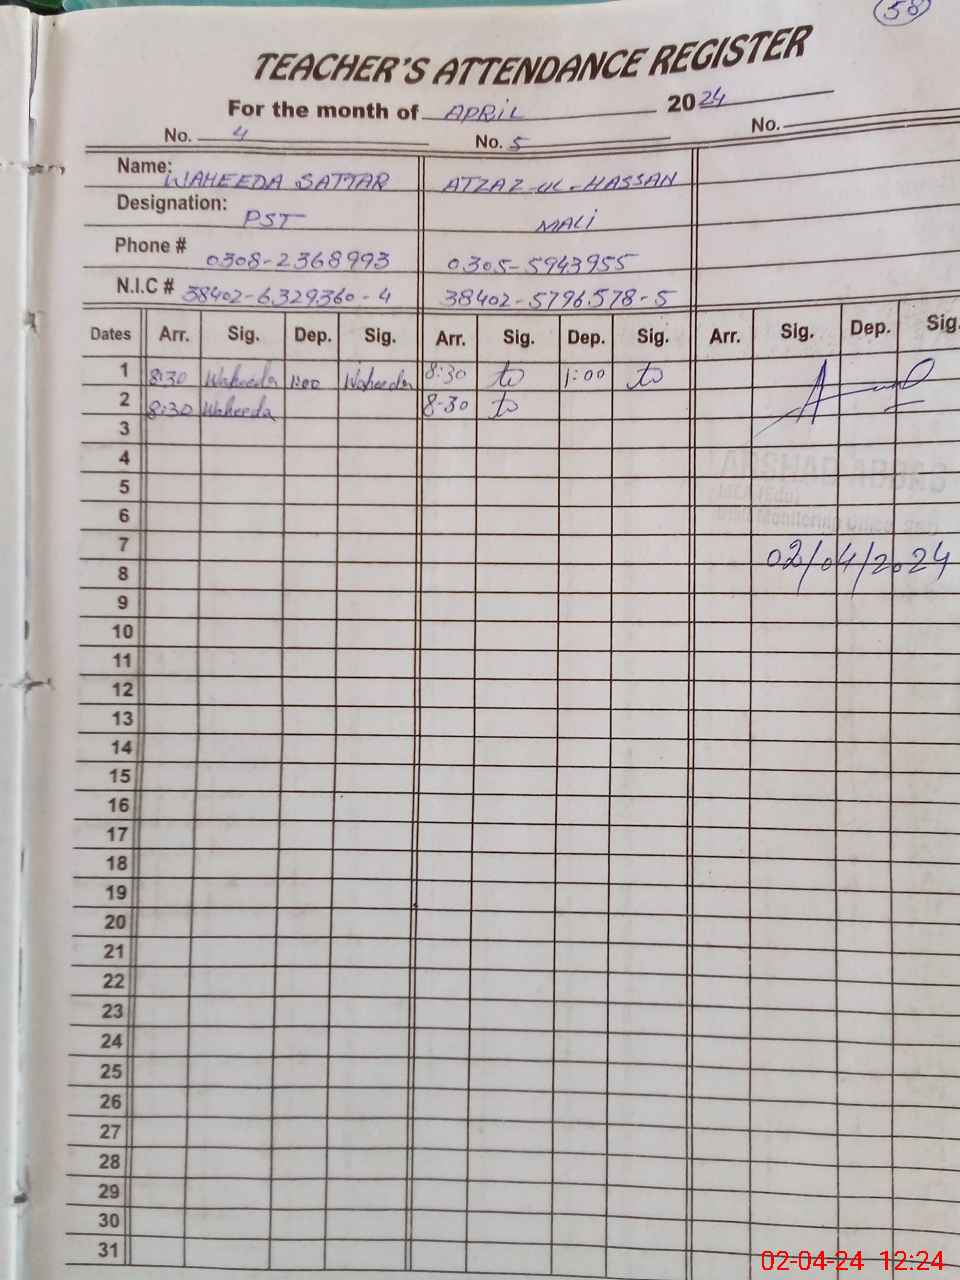 58
TEACHER'S ATTENDANCE REGISTER
For the month of APRIL 2024
No. 4 No. 5 No.
Name: WAHEEDA SATTAR ATZAZ-UL-HASSAN
Designation: PST MALI
Phone # 0308-2368993 0305-5943955
N.I.C # 38402-6329360-4 38402-5796578-5
Dates Arr. Sig. Dep. Sig. Arr. Sig. Dep. Sig. Arr. Sig. Dep. Sig.
1 8:30 Waheeda 1:00 Waheeda 8:30 1:00
2 8:30 Waheeda 8-30
3
4
5
6
7 02/04/2024
8
9
10
11
12
13
14
15
16
17
18
19
20
21
22
23
24
25
26
27
28
29
30
31
02-04-24 12:24